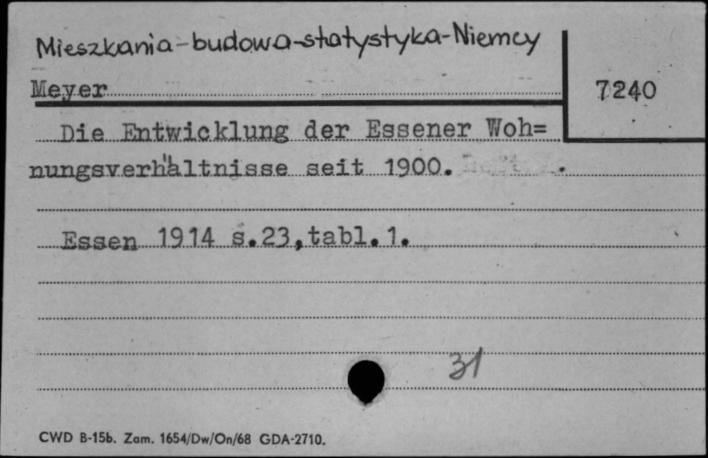 Mieszkania-budowa-statystyka-Niemcy
Meyer
7240
Die Entwicklung der Essener Woh=
nungsverhältnisse seit 1900.
Essen 1914 s.23,tabl.1.
31
CWD B-15b. Zam. 1654/Dw/On/68 GDA-2710.